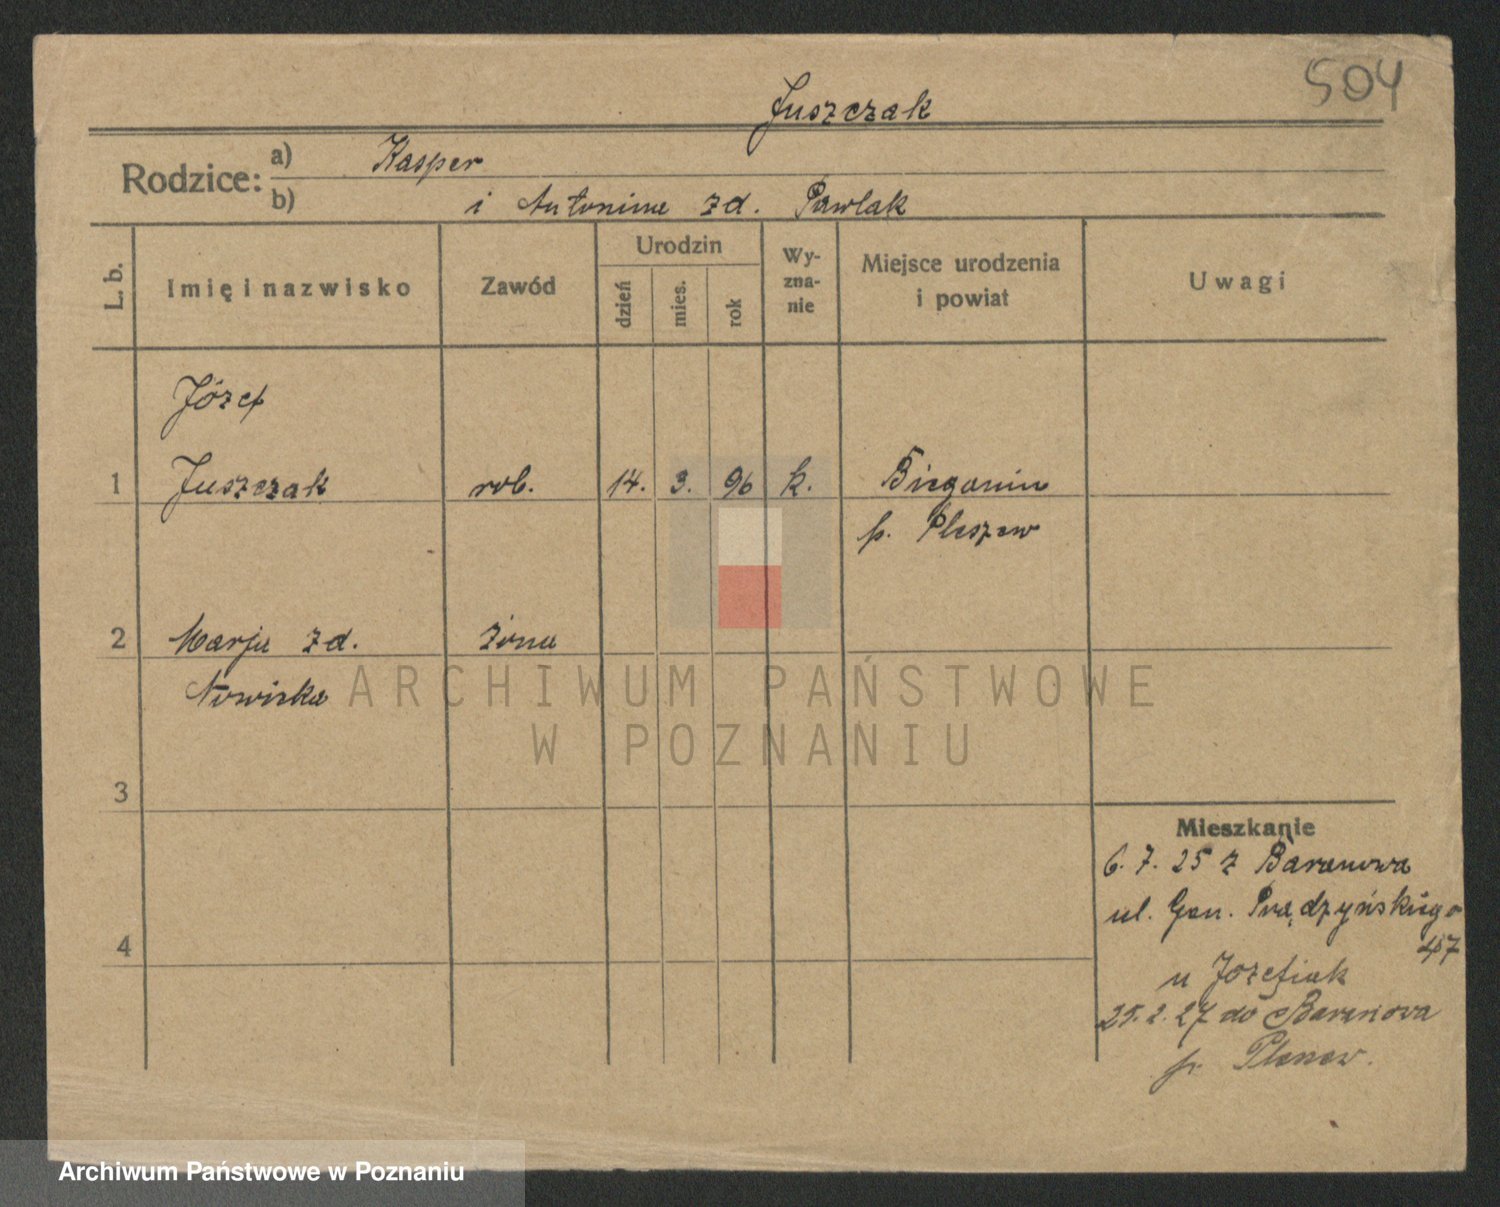 504
Juszczak
Rodzice: a) Kasper
b) i Antonina zd. Pawlak
L. b.
Imię i nazwisko
Zawód
Urodzin
dzień
mies.
rok
Wy-
zna-
nie
Miejsce urodzenia
i powiat
Uwagi
Józef
1 Juszczak rob. 14. 3. 96 k. Bieganin
p. Pleszew
2 Marja zd. żona
Nowicka
ARCHIWUM PAŃSTWOWE
W POZNANIU
3
Mieszkanie
6. 7. 25 z Baranowa
ul. Gen. Prądzyńskiego
47
4
u Józefiak
25. 2. 27 do Baranowa
p.
Archiwum Państwowe w Poznaniu